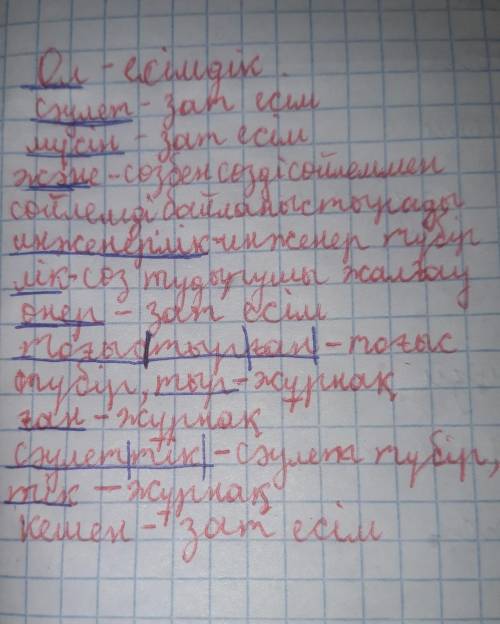 Ол - есімдік.
сәулет - зат есім
мүсін - зат есім
және - сөзбен сөзді сөйлеммен
сөйлемді байланыстырады
инженерлік - инженер түбір
лік - сөз тудырушы жалғау
өнер - зат есім
тоғыс|тыр|ған| - тоғыс
түбір, тыр - жұрнақ
ған - жұрнақ
сәулет|тік| - сәулет түбір,
тік - жұрнақ
кешен - зат есім